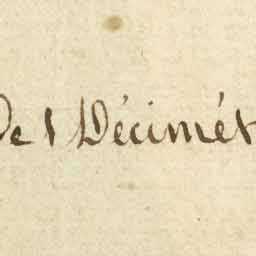 De 1 Décimét